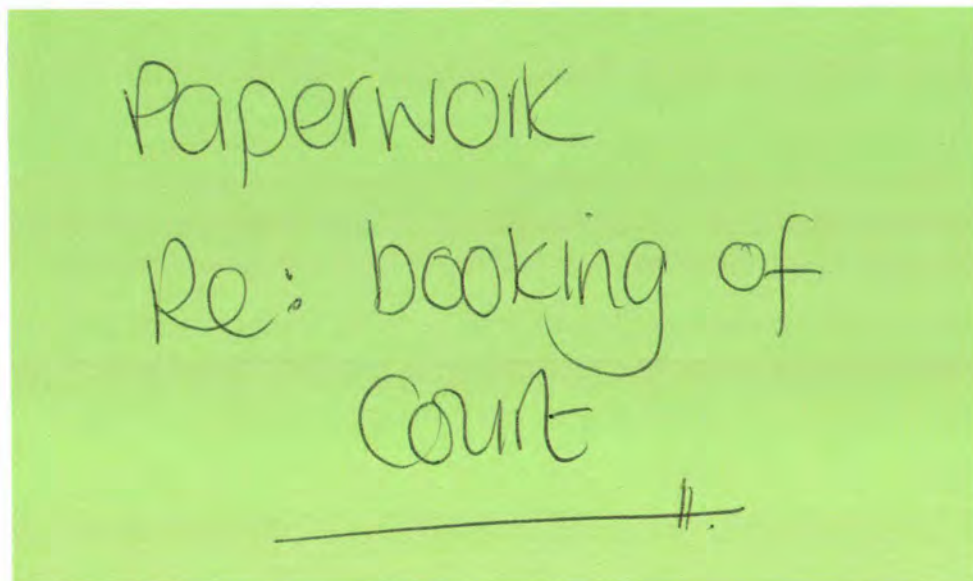 Paperwork
Re: booking of
Court